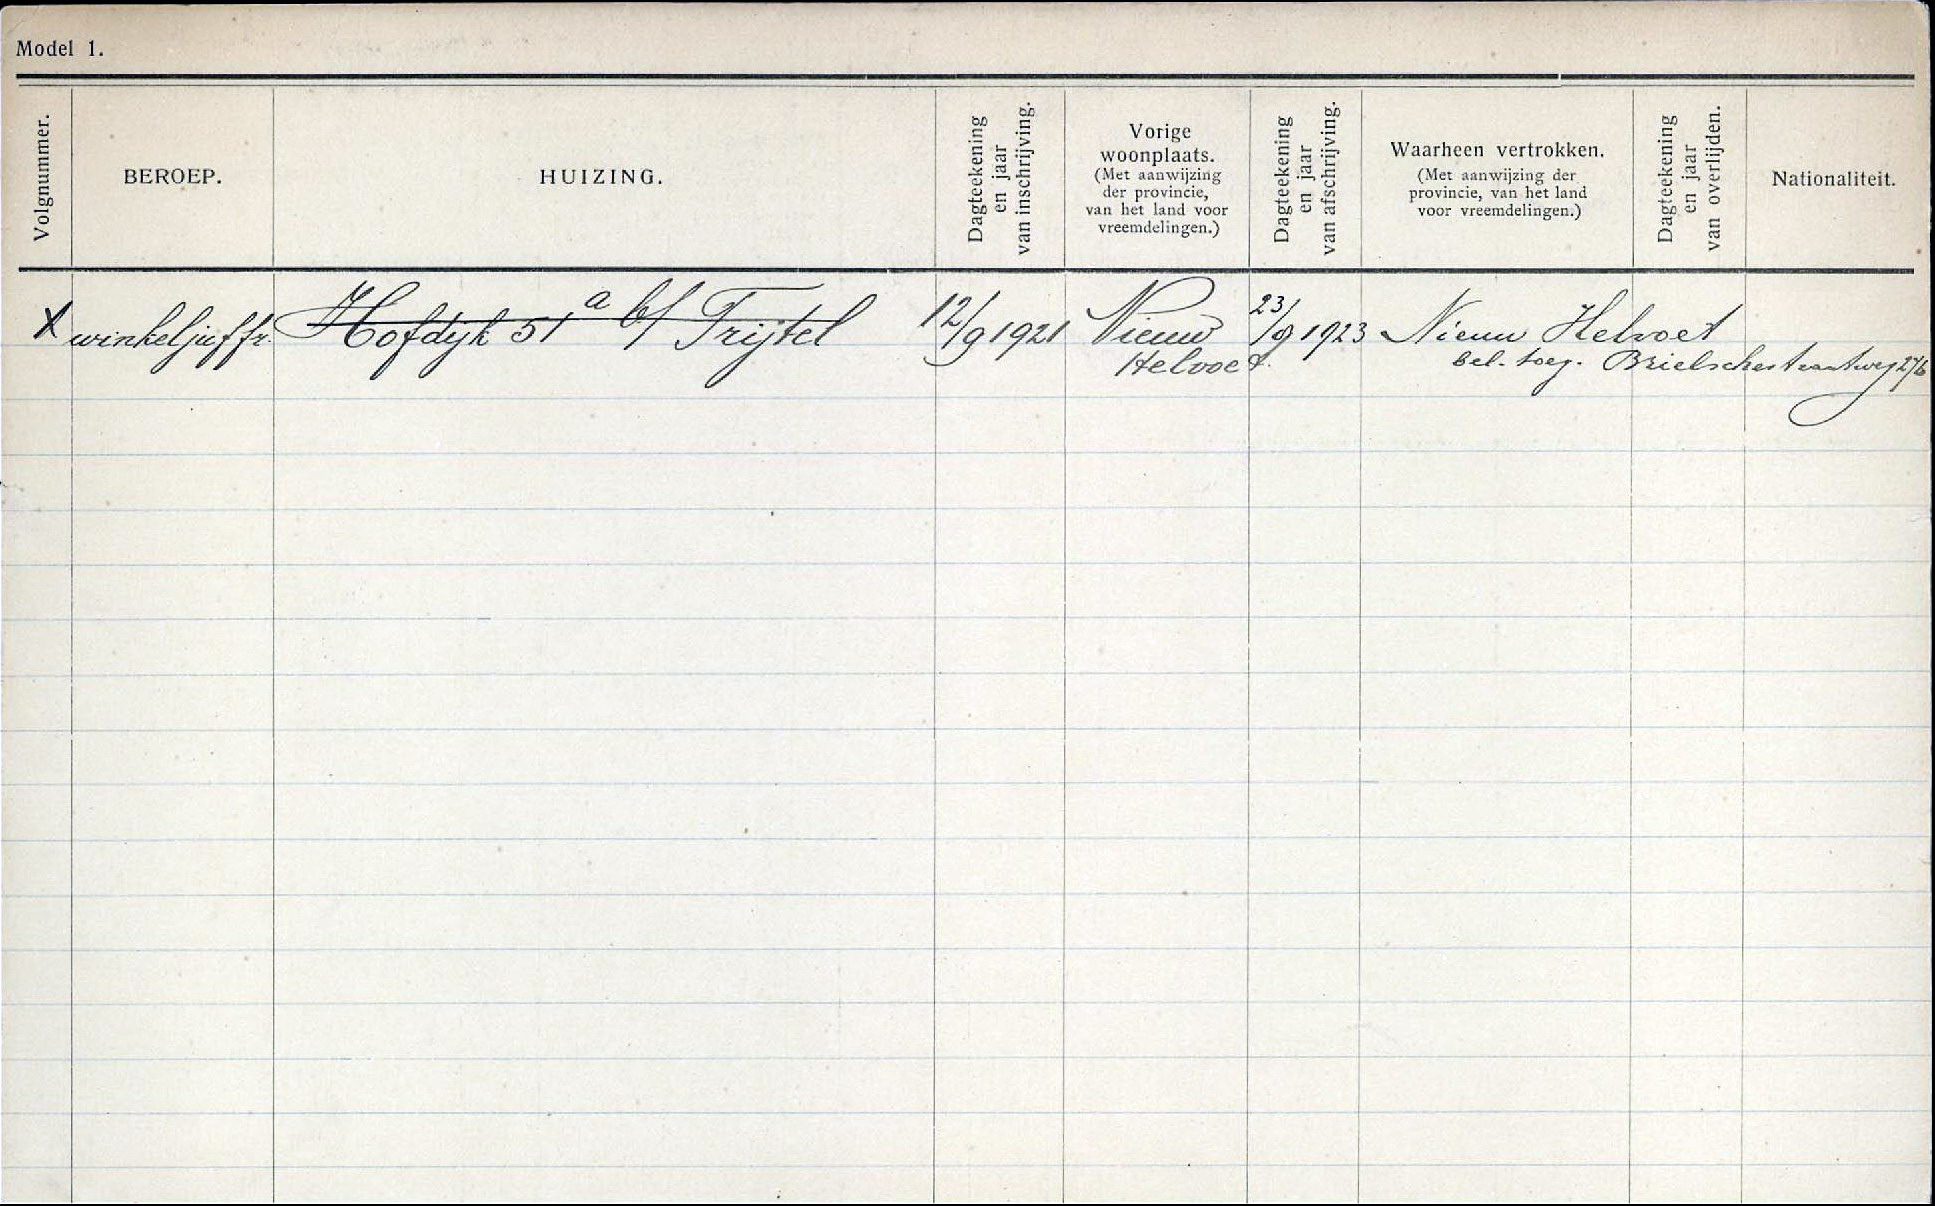 Model 1.
Volgnummer.
BEROEP.
HUIZING.
Dagteekening
en jaar
van inschrijving.
Vorige
woonplaats.
(Met aanwijzing
der provincie,
van het land voor
vreemdelingen.)
Dagteekening
en jaar
van afschrijving.
Waarheen vertrokken.
(Met aanwijzing der
provincie, van het land
voor vreemdelingen.)
Dagteekening
en jaar
van overlijden.
Nationaliteit.
X winkeljuffr. Hofdyk 51 a b/ Trijtel 12/9 1921 Nieuw 23/9 1923 Nieuw Helvoet
Helvoet. bel. toeg. Brielschestraatweg